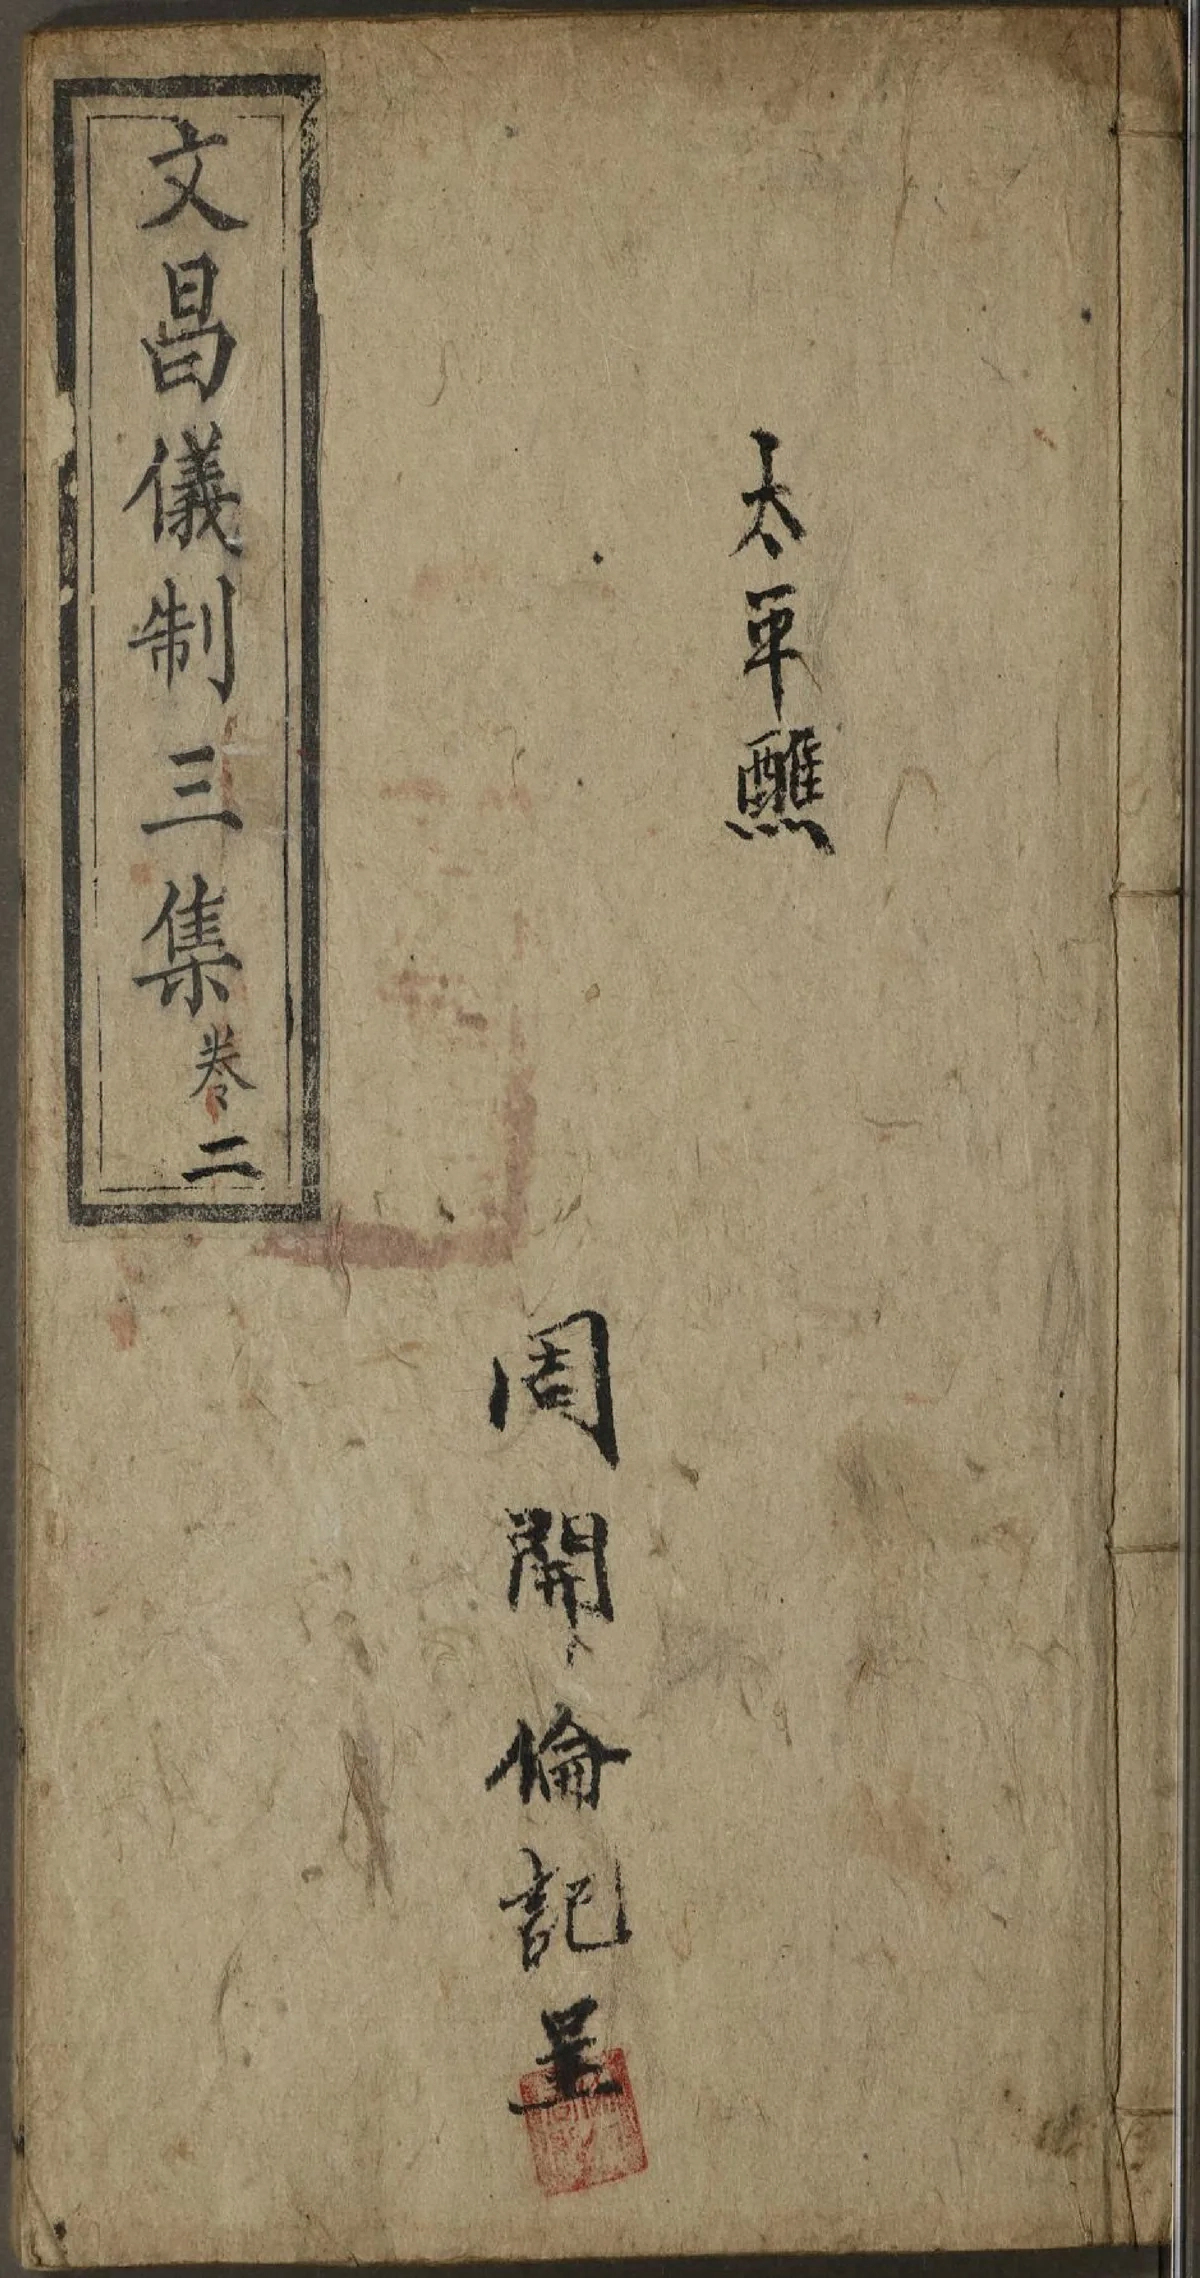 太平醮
周開倫記呈
文昌儀制三集卷二